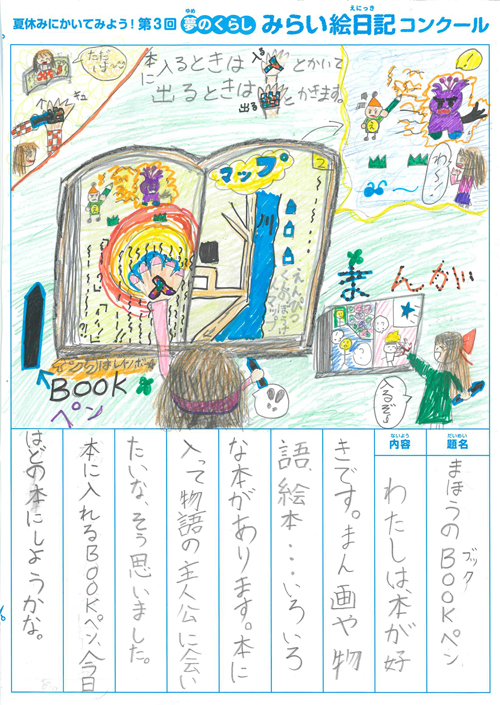 夏休みにかいてみよう！第3回 夢のくらし みらい絵日記 コンクール
ゆめ
えにっき
ただいま
キュ
本に入るときは
入る
とかいて
出るときは
出る
とかきます。
わ〜！
2
マップ
川
まんがい
入るぞ
インクはレインボー
BOOK
ペン
だいめい
題名
まほうのBOOKペン
ブック
ないよう
内容
わたしは、本が好
きです。まん画や物
語、絵本・・・いろいろ
な本があります。本に
入って物語の主人公に会い
たいな、そう思いました。
本に入れるBOOKペン、今日
はどの本にしようかな。